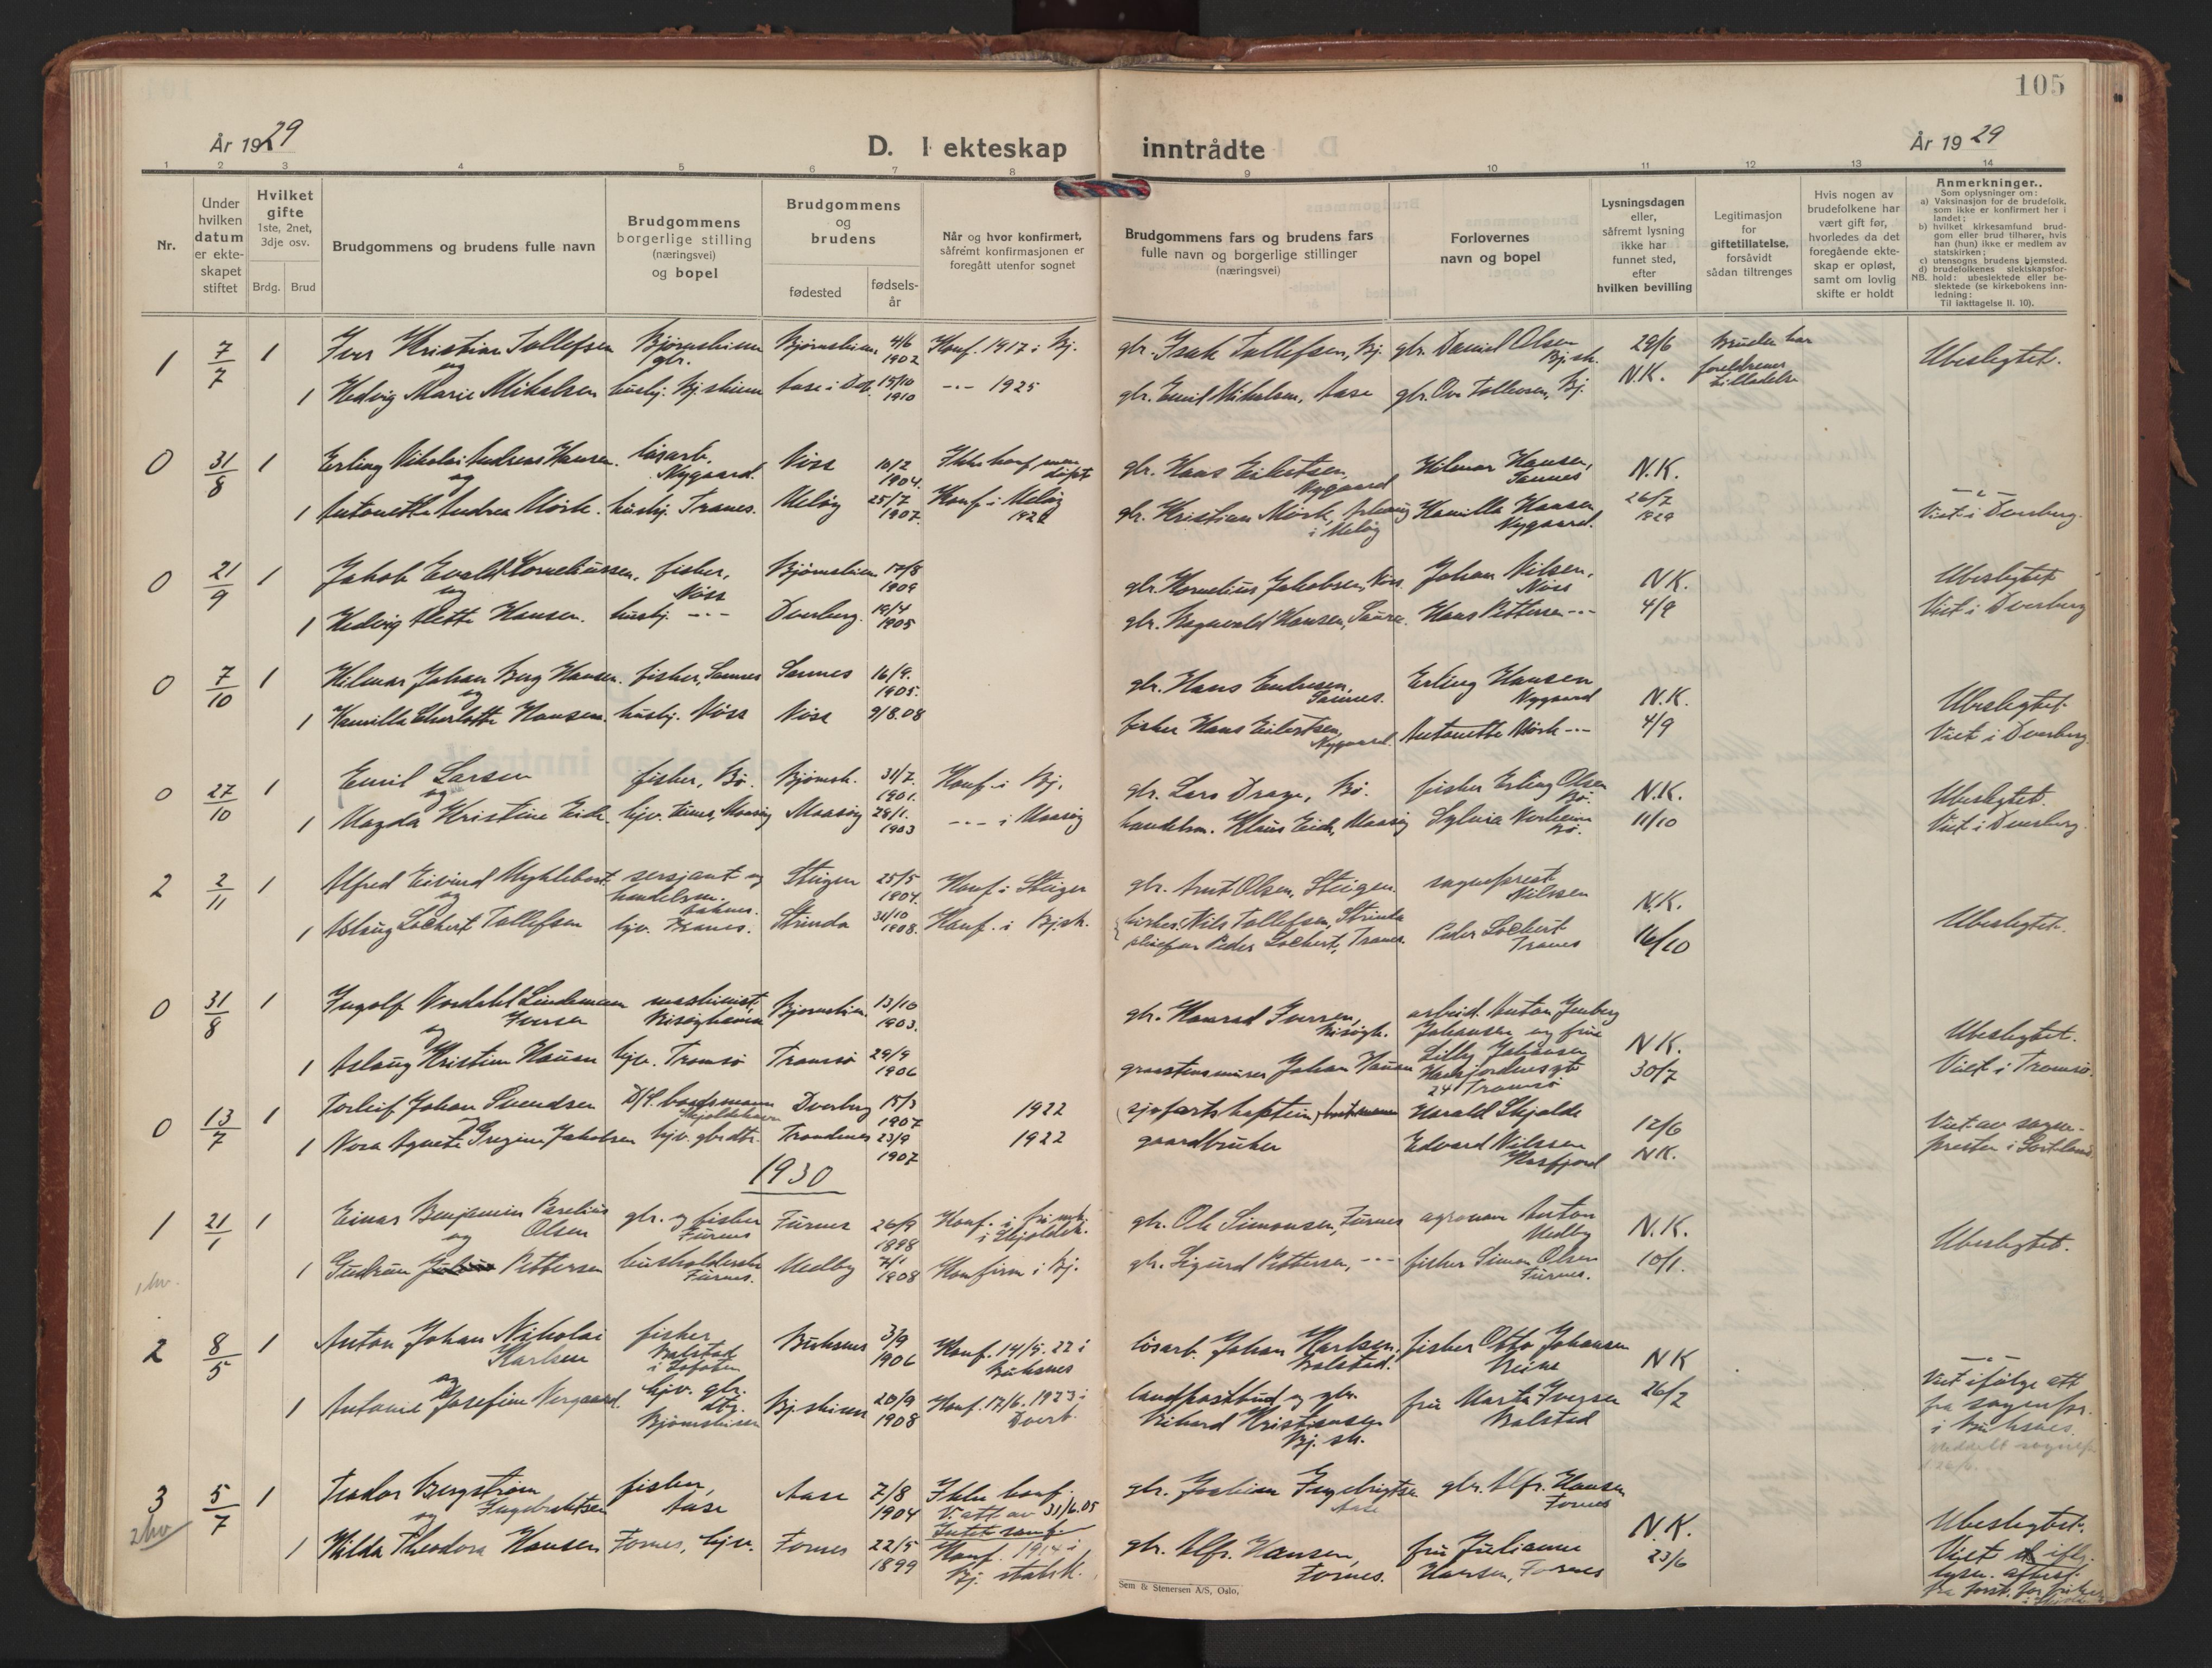 105
År 1929
D. I ekteskap inntrådte
År 1929
1 2 3 4 5 6 7 8 9 10 11 12 13 14
Nr.
Under hvilken datum er ekteskapet stiftet
Hvilket gifte
1ste, 2net, 3dje osv.
Brdg. Brud
Brudgommens og brudens fulle navn
Brudgommens borgerlige stilling (næringsvei) og bopel
Brudgommens og brudens
fødested
fødselsår
Når og hvor konfirmert, såfremt konfirmasjonen er foregått utenfor sognet
Brudgommens fars og brudens fars fulle navn og borgerlige stillinger (næringsvei)
Forlovernes navn og bopel
Lysningsdagen eller, såfremt lysning ikke har funnet sted, efter hvilken bevilling
Legitimasjon for giftetillatelse, forsåvidt sådan tiltrenges
Hvis nogen av brudefolkene har vært gift før, hvorledes da det foregående ekteskap er opløst, samt om lovlig skifte er holdt
Anmerkninger..
Som oplysninger om:
a) Vaksinasjon for de brudefolk, som ikke er konfirmert her i landet;
b) hvilket kirkesamfund brudgom eller brud tilhører, hvis han (hun) ikke er medlem av statskirken;
c) utensogns brudens hjemsted.
d) brudefolkenes slektskapsforhold: ubeslektede eller beslektede (se kirkebokens innledning:
NB.
Til iakttagelse II. 10).
1 7/7 1 Iver Kristian Tollefsen Bjørnskinn gbr. Bjørnskinn 4/6 1902 Konf. 1917 i Bj. gbr. Isak Tollefsen, Bj. gbr. Daniel Olsen Bj.sk. 29/6 Bruden har foreldrenes tilladelse Ubeslegtet.
og
1 Hedvig Marie Mikalsen husbj. Bj.skinn Aase i Dvb. 15/10 1910 -"- 1925 gbr. Emil Mikalsen, Aase gbr. Ove Tollevsen, Bj. N.K.
0 31/8 1 Erling Nikolai Andreas Hansen. løsarb. Nygaard. Nøss 10/2 1904. Ikke konf. men døpt gbr. Hans Eilertsen, Nygaard Hilmar Hansen, Sannes N.K.
og
1 Antonette Andrea Mørk. husbj. Tranes. Meløy 25/7 1907. Konf. i Meløy gbr. Kristian Mørk, i Meløy Kamilla Hansen Nygaard. 26/7 1929 -"- Viet i Dverberg.
0 21/9 1 Jakob Evald Korneliussen, fisker, Nøss Bjørnskinn 17/8 1909 gbr. Kornelius Jakobsen, Nøss. Johan Nilsen, Nøss N.K. Ubeslegtet
og
1 Hedvig Alette Hansen. husbj. -"- Dverberg. 19/4 1905 gbr. Ragnvald Hansen, Saura. Hans Pettersen -"- 4/9 Viet i Dverberg
0 7/10 1 Hilmar Johan Berg Hansen. fisker, Sannes Sannes 16/9. 1905. gbr. Hans Endresen, Sannes. Erling Hansen Nygaard N.K. Ubeslegtet.
og
1 Kamilla Charlotte Hansen. husbj. Nøss Nøss 9/8.08 fisker Hans Eilertsen, Nygaard. Antonette Mørk -"- 4/9 Viet i Dverberg.
0 27/10 1 Emil Larsen fisker, Bø. Bjørnsk. 31/7. 1901. Konf. i Bj. gbr. Lars Drage, Bø. fisker Erling Olsen Bø. N.K. Ubeslegtet.
og
1 Magda Kristine Eide. hjv. Maasøy Maasøy 29/1. 1903 -"- i Maasøy handelsm. Klaus Eide, Maasøy Sylvia Bø. 11/10 Viet i Dverberg.
2 2/11 1 Alfred Eivind Myklebost sersjant og handelsm. Steigen 25/5 1904. Konf. i Steigen gbr. Arnt Olsen, Steigen. sogneprest Nilssen N.K.
og
1 Aslaug Lockert Tollefsen hjv. Tranes. Strinda 31/10 1908. Konf. i Bj.sk. Nils Tollefsen, Strinda pleiefar Peder Lockert, Tranes. Peder Lockert Tranes 16/10 Ubeslegtet.
0 31/8 1 Ingolf Nordahl Lindeman Iversen maskinist, Risøyhamn Bjørnskinn 13/10 1903. gbr. Konrad Iversen, Risøyh. arbeid. Anton Johansen og frue Lilly Johansen 24 Tromsø N.K. Ubeslegtet.
og
1 Aslaug Kristine Hansen hjv. Tromsø Tromsø 29/9 1906 graastensmurer Johan Hansen 30/7 Viet i Tromsø.
0 13/7 1 Torleif Johan Svendsen D/S. baadsmann Skjoldehavn Dverberg 15/3 1907 1922 (sjøfartskaptein) Harald Skjolde 12/6 Viet av sogne-
1 Nora Agnete Gregine Jakobsen hjv. gbr.dtr. Trondenes 23/9 1907 1922 gaardbruker Edvard Nilssen Kvæfjord N.K. presten i Sortland.
1930
1 21/1 1 Einar Benjamin Parelius Olsen gbr. og fisker Furnes Furnes 26/9 1898 Konf. i frimk. i Skjoldeh. gbr. Ole Simonsen, Furnes agronom Anton Medby N.K. Ubeslegtet.
og
1 hv.
1 Gudrun Pettersen husholderske Furnes. Medby 7/1 1908 Konfirm i Bj. gbr. Sigurd Pettersen, -"- fisker Simon Olsen Furnes. 10/1.
2 8/5 1 Anton Johan Nikolai Karlsen fisker Balstad i Lofoten Buksnes 3/9 1906 Konf. 14/9.22 i Buksnes løsarb. Johan Karlsen, Balstad. fisker Otto Johansen Reine N.K. -"-
og
1 Antonie Josefine Norgaard. hjv. gbr. dtr. Bjørnskinn Bj.skinn 20/9 1908 Konf. 17/6.1923 i Dverb. landpostbud og gbr. Rikard Kristiansen Bj.sk. fru Marta Iversen Balstad 26/2 Viet ifølge att fra sognepr. i Buksnes.
3 5/7 1 Teodor Bergstrøm Ingebrektsen fisker, Aase Aase 7/8 1904 Ikke konf. V. att av 31/6.05 gbr. Ingebrigtsen Aase gbr. Alfr. Hansen Fornes N.K. Ubeslegtet.
2 hv
og
1 Hilda Theodora Hansen Fornes, hjv. Fornes 22/5 1899 Konf. 1914 i Bj. statsk. gbr. Alfr. Hansen, Fornes. fru Julianne Hansen, Fornes 23/6 Viet ifl. lysn. attest fra forst. for
Sem & Stenersen A/S, Oslo,